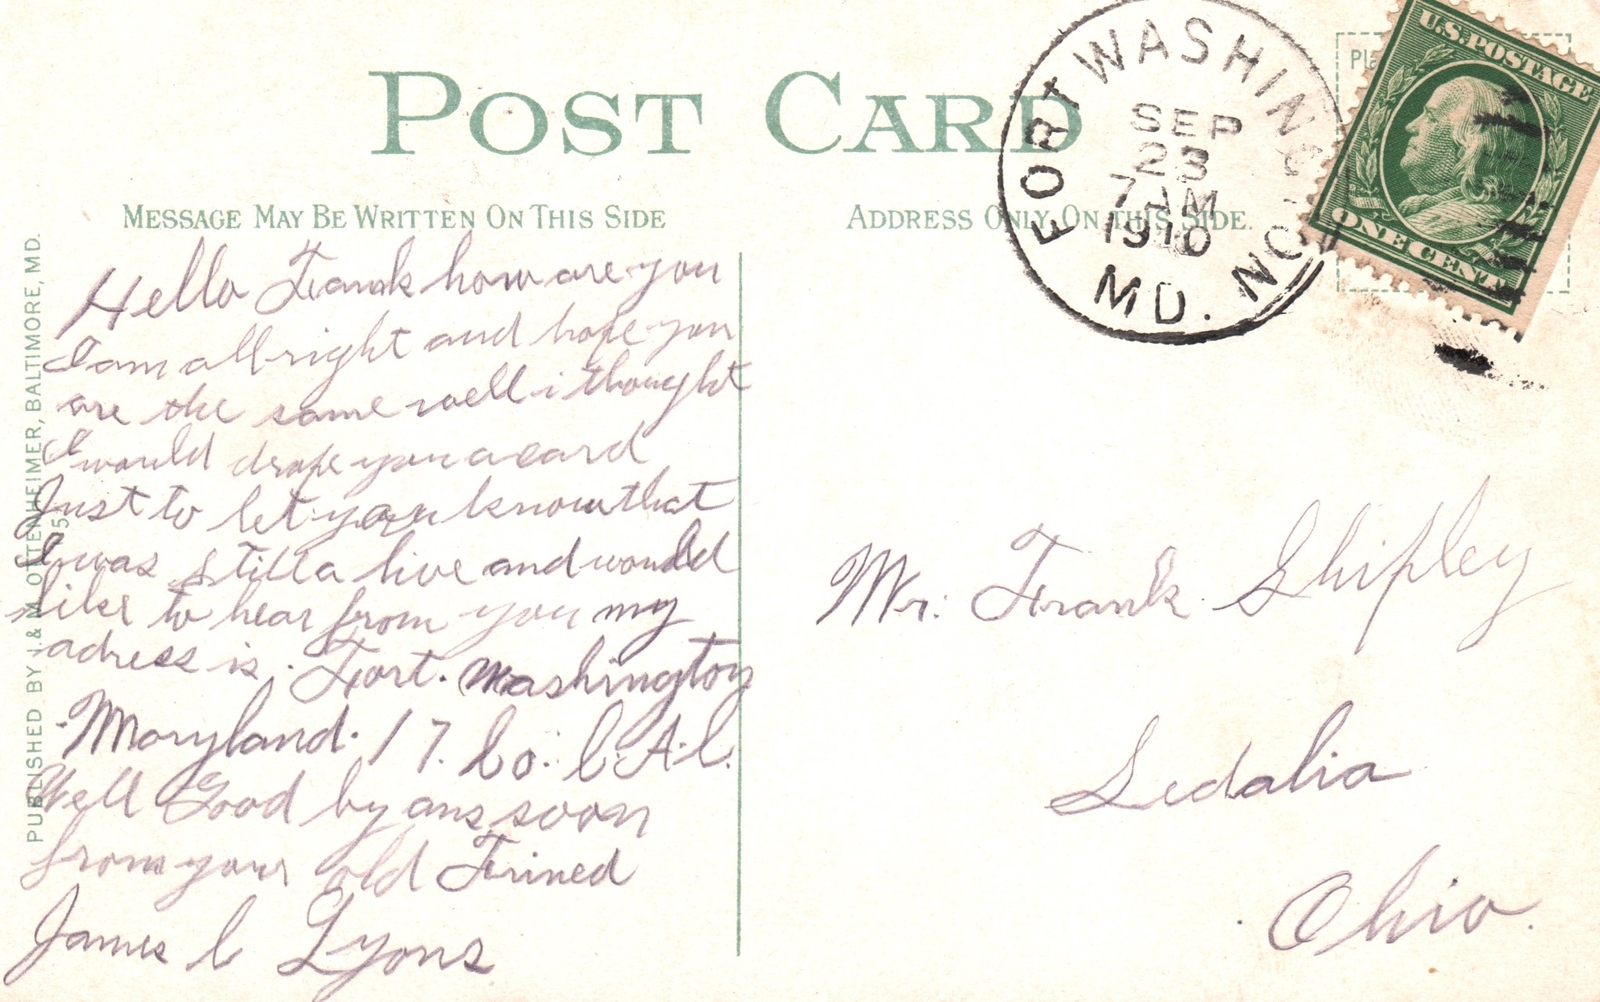 POST CARD
MESSAGE MAY BE WRITTEN ON THIS SIDE
ADDRESS ONLY ON THIS SIDE.
FORT WASHINGTON
MD.
SEP
23
7 AM
1910
U.S. POSTAGE
ONE CENT
PUBLISHED BY I. & M. OTTENHEIMER, BALTIMORE, MD.
Hello Frank how are you
I am all right and hope you
are the same well i thought
I would drope you a card
Just to let you know that
I was still a live and would
like to hear from you my
adress is. Fort. Washington
Maryland. 17. Co. C.A.C.
Well Good by ans soon
from your old Frined
James C Lyons
Mr. Frank Shipley
Sedalia
Ohio.